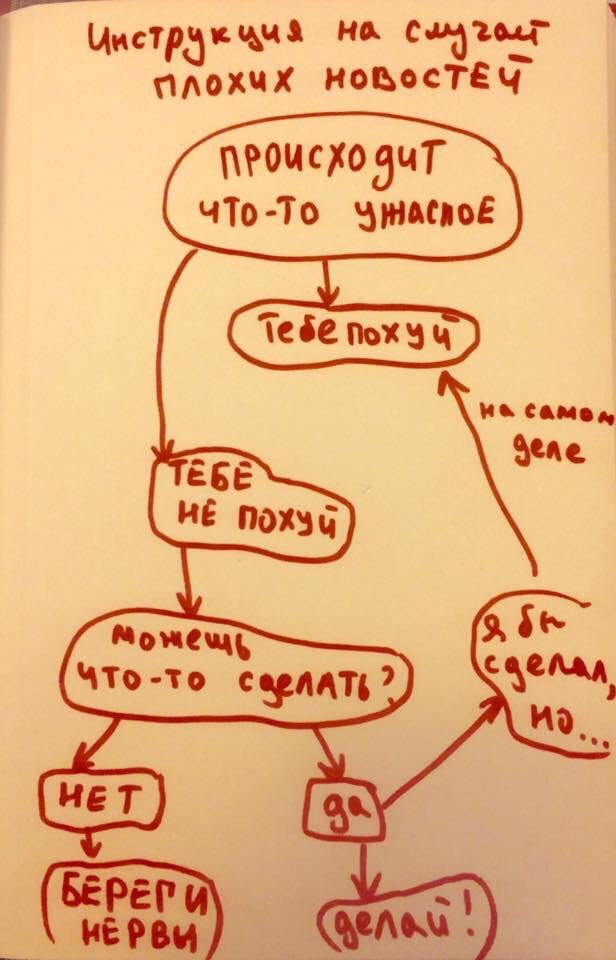 Инструкция на случай
плохих новостей
ПРОИСХОДИТ
ЧТО-ТО УЖАСНОЕ
Тебе похуй
на самом
деле
ТЕБЕ
НЕ ПОХУЙ
можешь
ЧТО-ТО СДЕЛАТЬ?
я бы
сделал,
но...
НЕТ
да
БЕРЕГИ
НЕРВИ
делай!